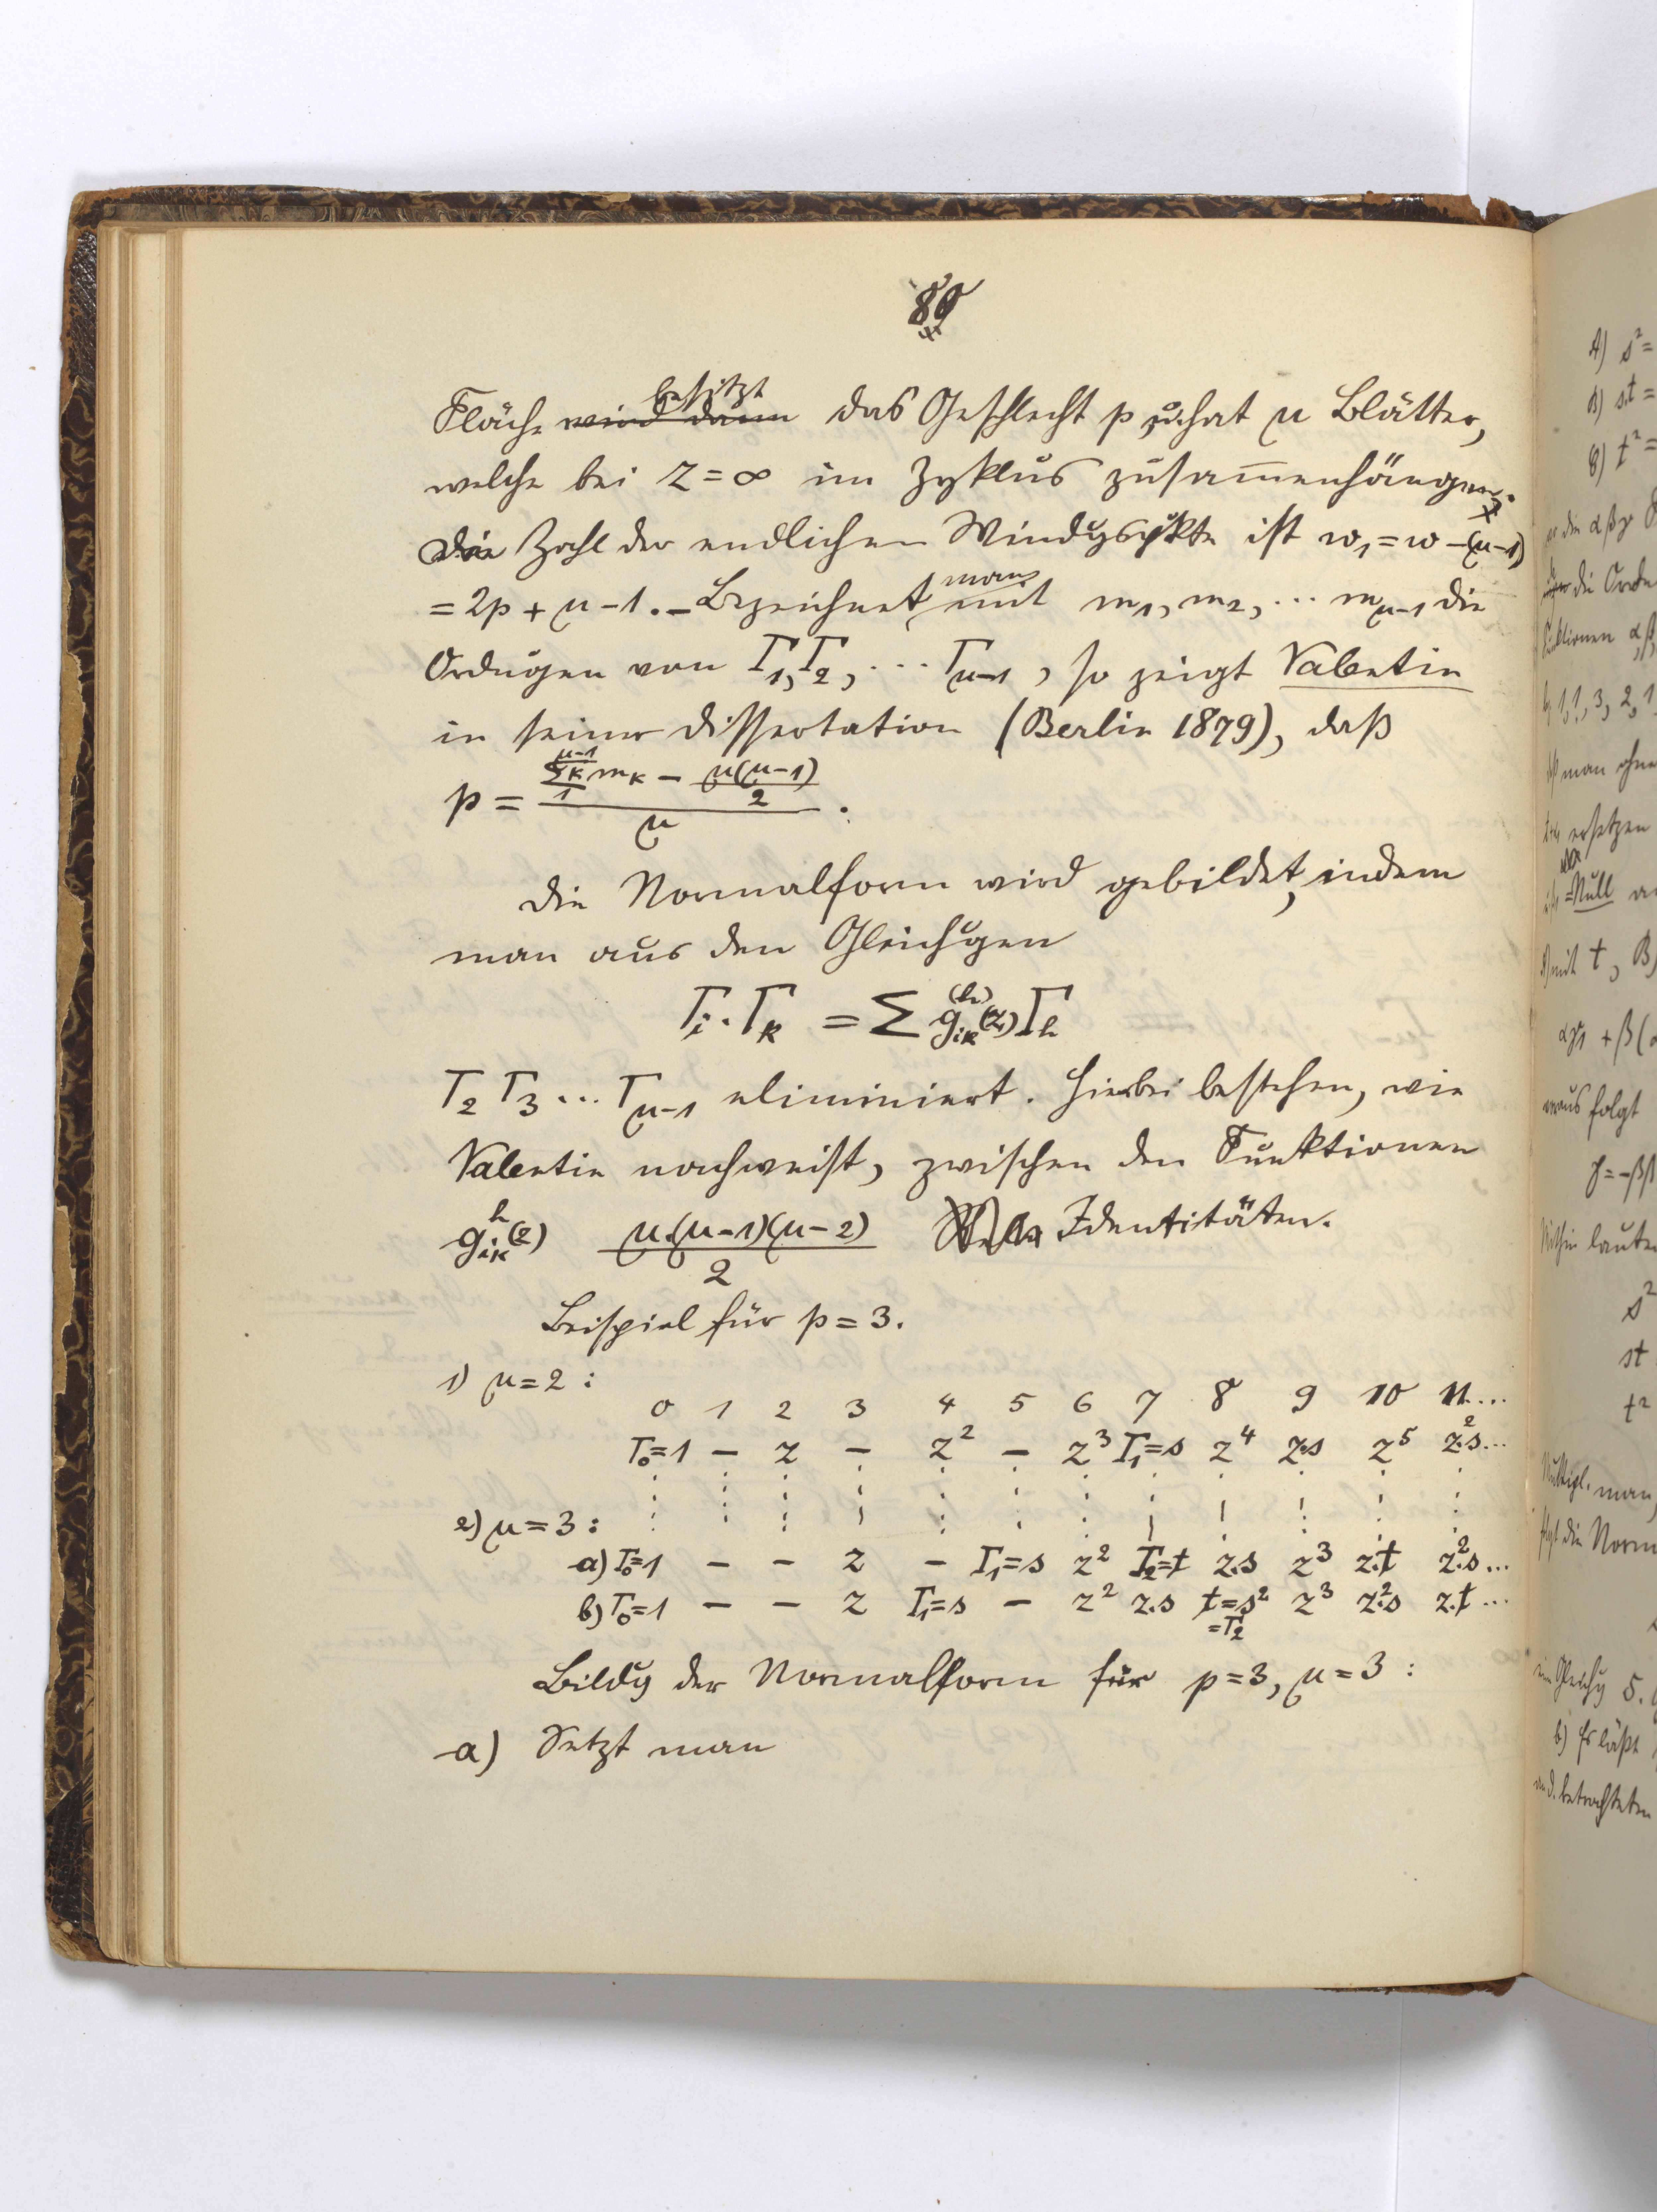 80
Fläche besitzt das Geschlecht p u. hat μ Blätter,
welche bei z = ∞ im Zyklus zusammenhängen.
Die Zahl der endlichen Windgspkte ist w₁ = w - (μ-1)
= 2p + μ - 1. – Bezeichnet man mit m₁, m₂, ... m_{μ-1} die
Ordnugen von Γ₁, Γ₂, ... Γ_{μ-1}, so zeigt Valentin
in seiner Dissertation (Berlin 1879), daß
p = (Σ_{1}^{μ-1}ₖ mₖ - μ(μ-1)/2) / μ .
Die Normalform wird gebildet, indem
man aus den Gleichugen
Γᵢ · Γₖ = Σ g_{ik}^{(h)}(z) Γₕ
Γ₂ Γ₃ ... Γ_{μ-1} eliminiert. Hierbei bestehen, wie
Valentin nachweist, zwischen den Funktionen
g_{ik}^{h}(z) μ(μ-1)(μ-2)/2 Identitäten.
Beispiel für p = 3.
1) μ = 2 :
0 1 2 3 4 5 6 7 8 9 10 11 ...
Γ₀=1 – z – z² – z³ Γ₁=s z⁴ z·s z⁵ z²·s ...
2) μ = 3 :
a) Γ₀=1 – – z – Γ₁=s z² Γ₂=t z.s z³ z.t z².s ...
b) Γ₀=1 – – z Γ₁=s – z² z.s t=s² z³ z².s z.t ...
=Γ₂
Bildg der Normalform für p = 3, μ = 3 :
a) Setzt man
A) s² =
B) s.t =
C) t² =
die αβγ
die Orde
1, 1, 3, 2, 1
man ohne
ersetzen
= Null
mit t, B)
αγ₁ + β(
folgt
γ = -ββ
lauten
s²
st
t²
man,
die Norm
5.
b) Es läßt
betrachteten